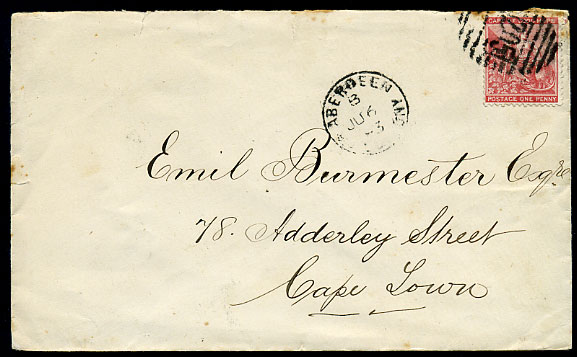 CAPE OF GOOD HOPE
POSTAGE ONE PENNY
ABERDEEN
B
JU 6
Emil Burmester Esqre
78. Adderley Street
Cape Town